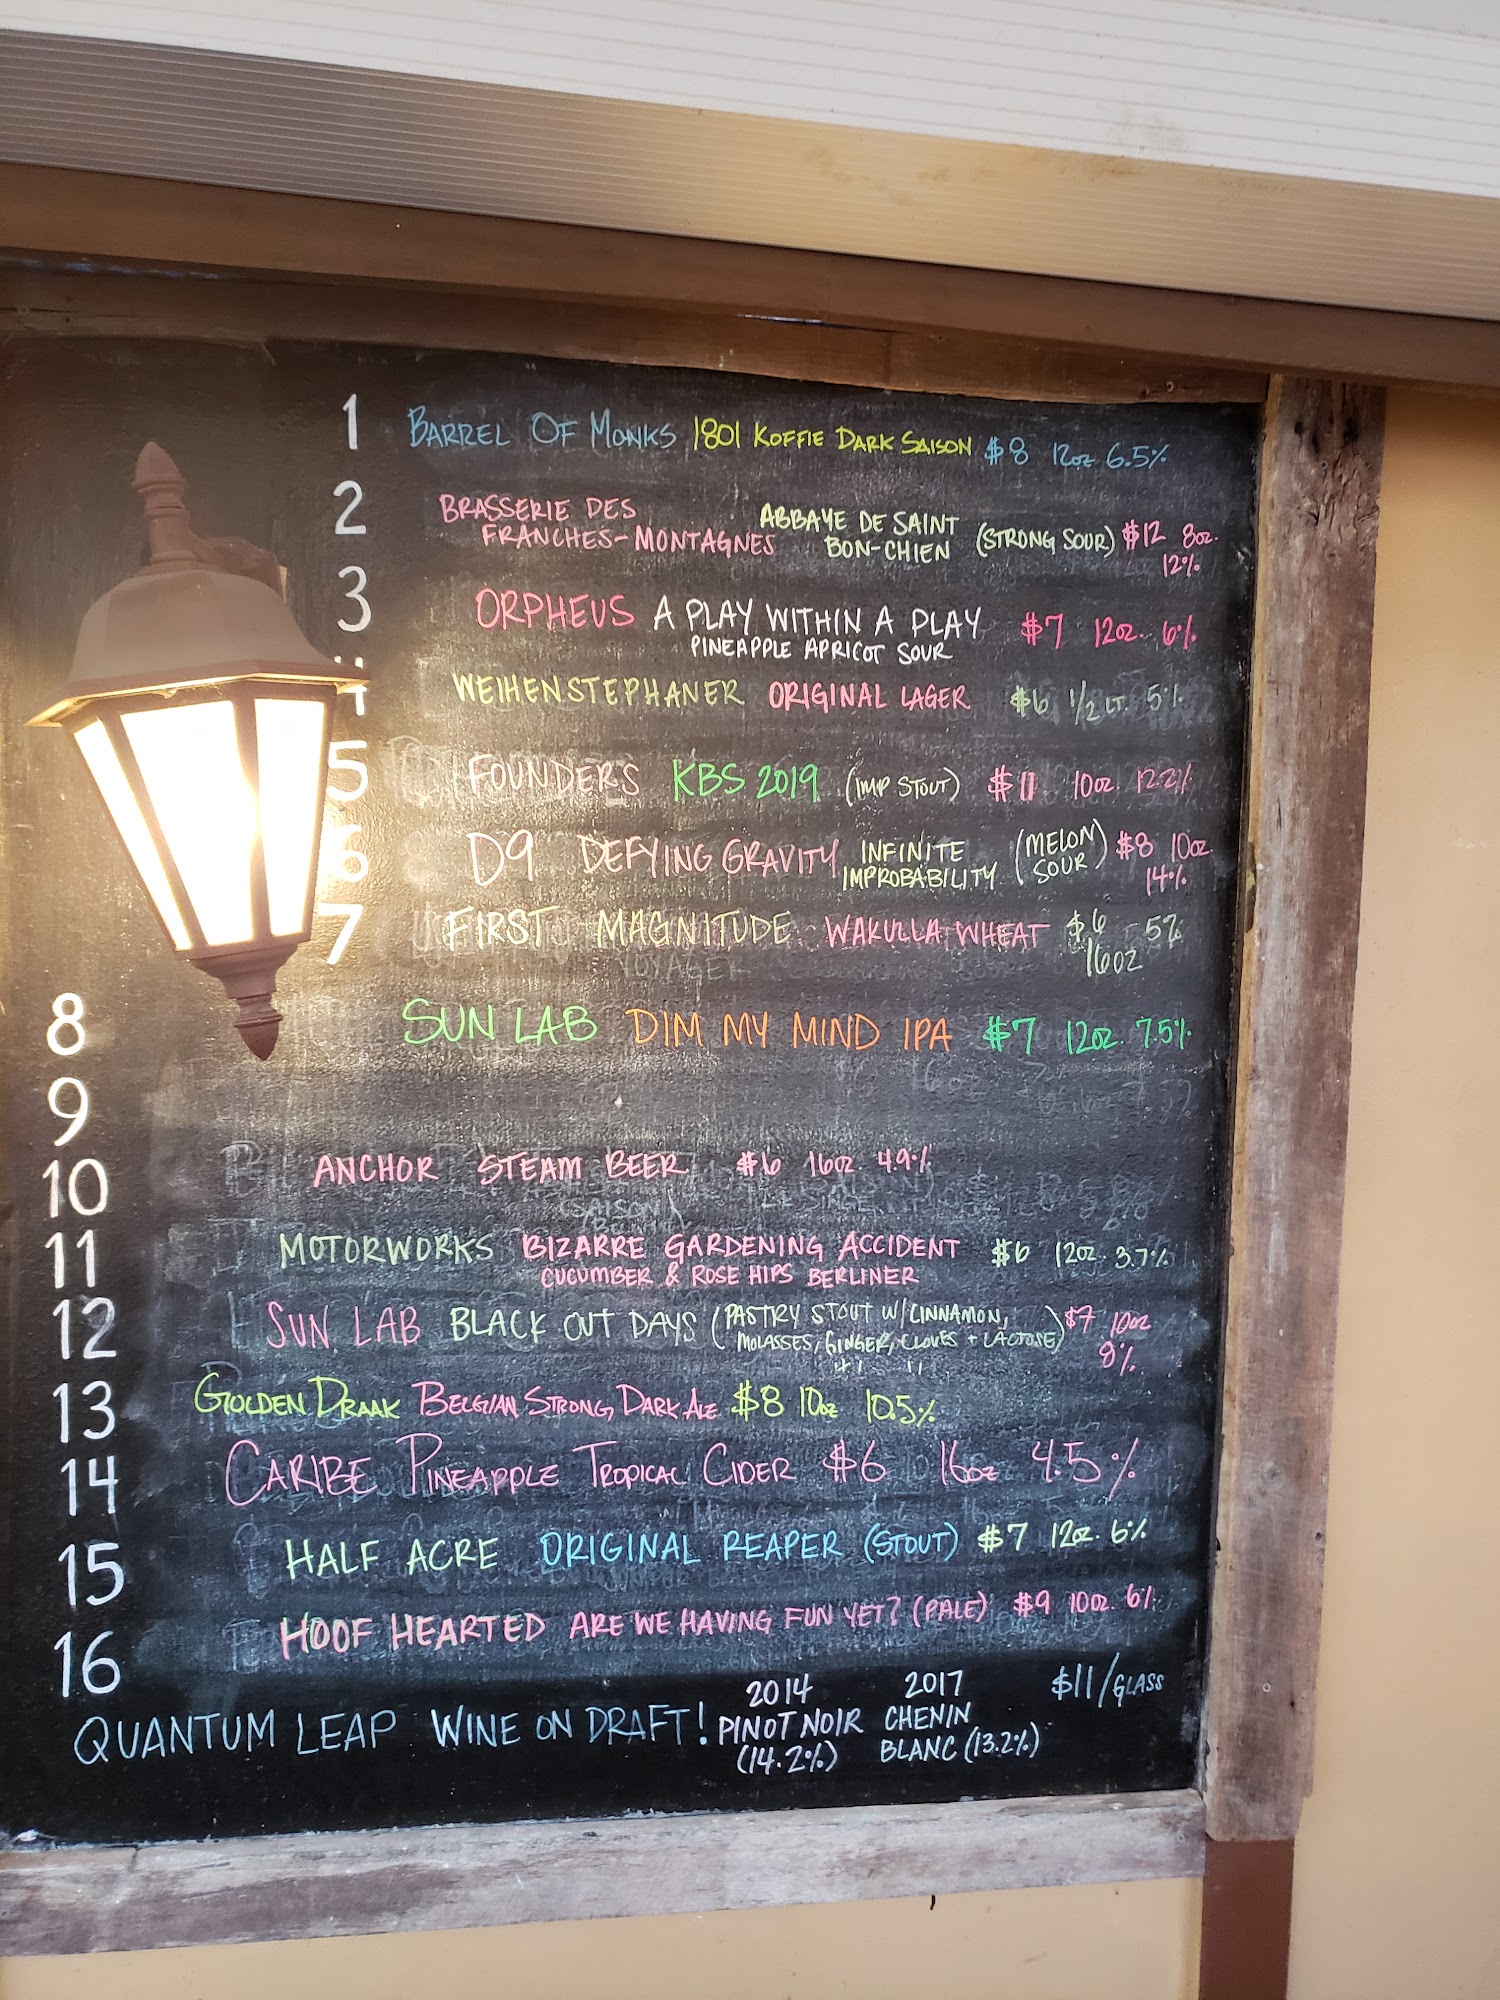 1 BARREL OF MONKS 1801 KOFFIE DARK SAISON $8 12oz 6.5%
2 BRASSERIE DES FRANCHES-MONTAGNES ABBAYE DE SAINT BON-CHIEN (STRONG SOUR) $12 8oz. 12%
3 ORPHEUS A PLAY WITHIN A PLAY $7 12oz. 6%
PINEAPPLE APRICOT SOUR
4 WEIHENSTEPHANER ORIGINAL LAGER $6 1/2 LT. 5%
5 FOUNDERS KBS 2019 (IMP STOUT) $11 10oz 12.2%
6 D9 DEFYING GRAVITY INFINITE IMPROBABILITY (MELON SOUR) $8 10oz. 14%
7 FIRST MAGNITUDE WAKULLA WHEAT $6 16oz 5%
VOYAGER
8 SUN LAB DIM MY MIND IPA $7 12oz. 7.5%
9
10 ANCHOR STEAM BEER $6 16oz 4.9%
11 MOTORWORKS BIZARRE GARDENING ACCIDENT $6 12oz. 3.7%
CUCUMBER & ROSE HIPS BERLINER
12 SUN LAB BLACK OUT DAYS (PASTRY STOUT W/CINNAMON, MOLASSES, GINGER, CLOVES + LACTOSE) $7 10oz 8%
13 GOLDEN DRAAK BELGIAN STRONG DARK ALE $8 10oz 10.5%
14 CARIBE PINEAPPLE TROPICAL CIDER $6 16oz 4.5%
15 HALF ACRE ORIGINAL REAPER (STOUT) $7 12oz. 6%
16 HOOF HEARTED ARE WE HAVING FUN YET? (PALE) $9 10oz. 6%
QUANTUM LEAP WINE ON DRAFT! 2014 PINOT NOIR (14.2%) 2017 CHENIN BLANC (13.2%) $11/GLASS